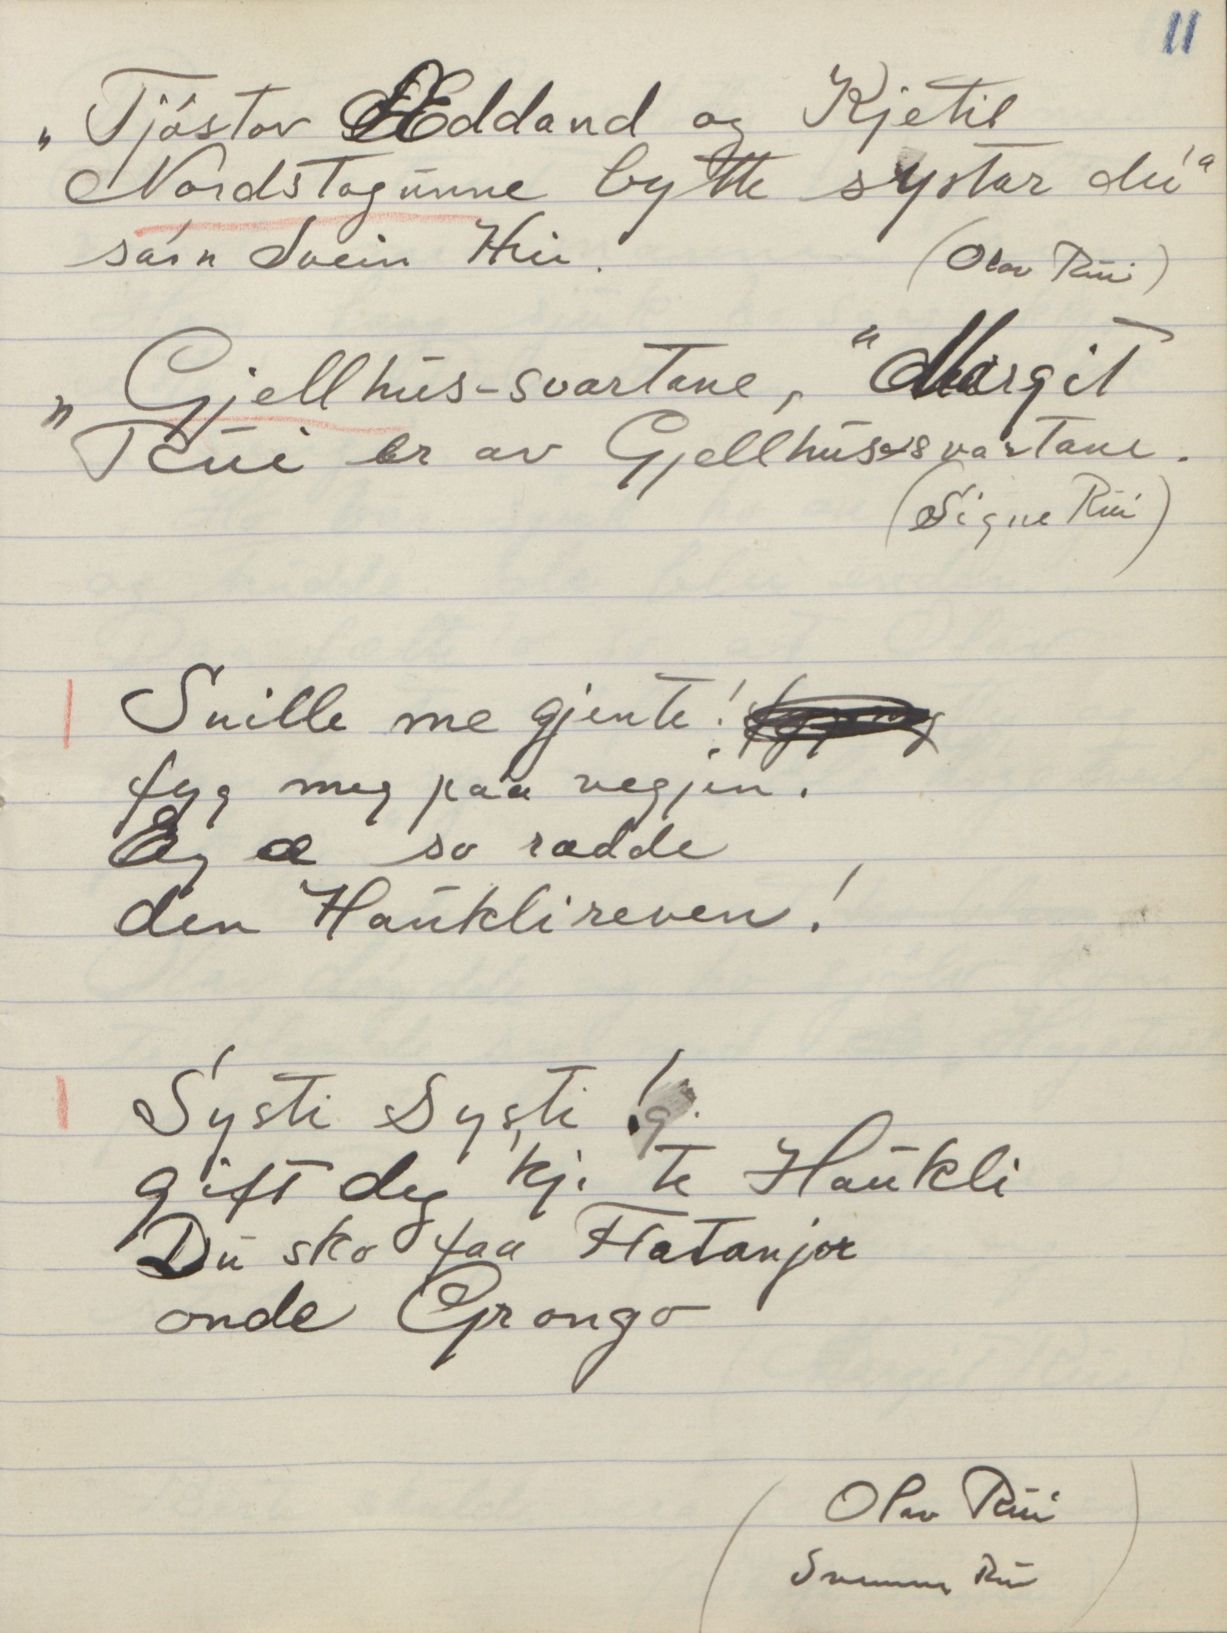 11
"Tjöstov Eddand og Kjetil
Nordstogunne bytte systar du"
sa'n Svein Hui.
(Olav Rui)
"Gjellhus-svartane," Margit
Rui er av Gjellhus-svartane.
(Signe Rui)
Snille me gjente!
fyg meg paa vegjen.
Eg æ so rædde
den Hauklireven!
Systi Systi!
gift deg 'kji te Haukli
Du sko faa Flatanjor
onde Grongo
(Olav Rui
Rui)